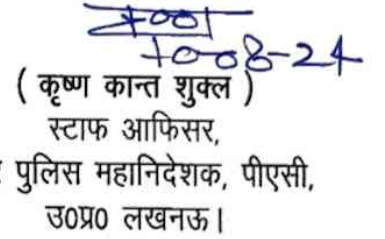 10-08-24
( कृष्ण कान्त शुक्ल )
स्टाफ आफिसर,
पुलिस महानिदेशक, पीएसी,
उ0प्र0 लखनऊ।